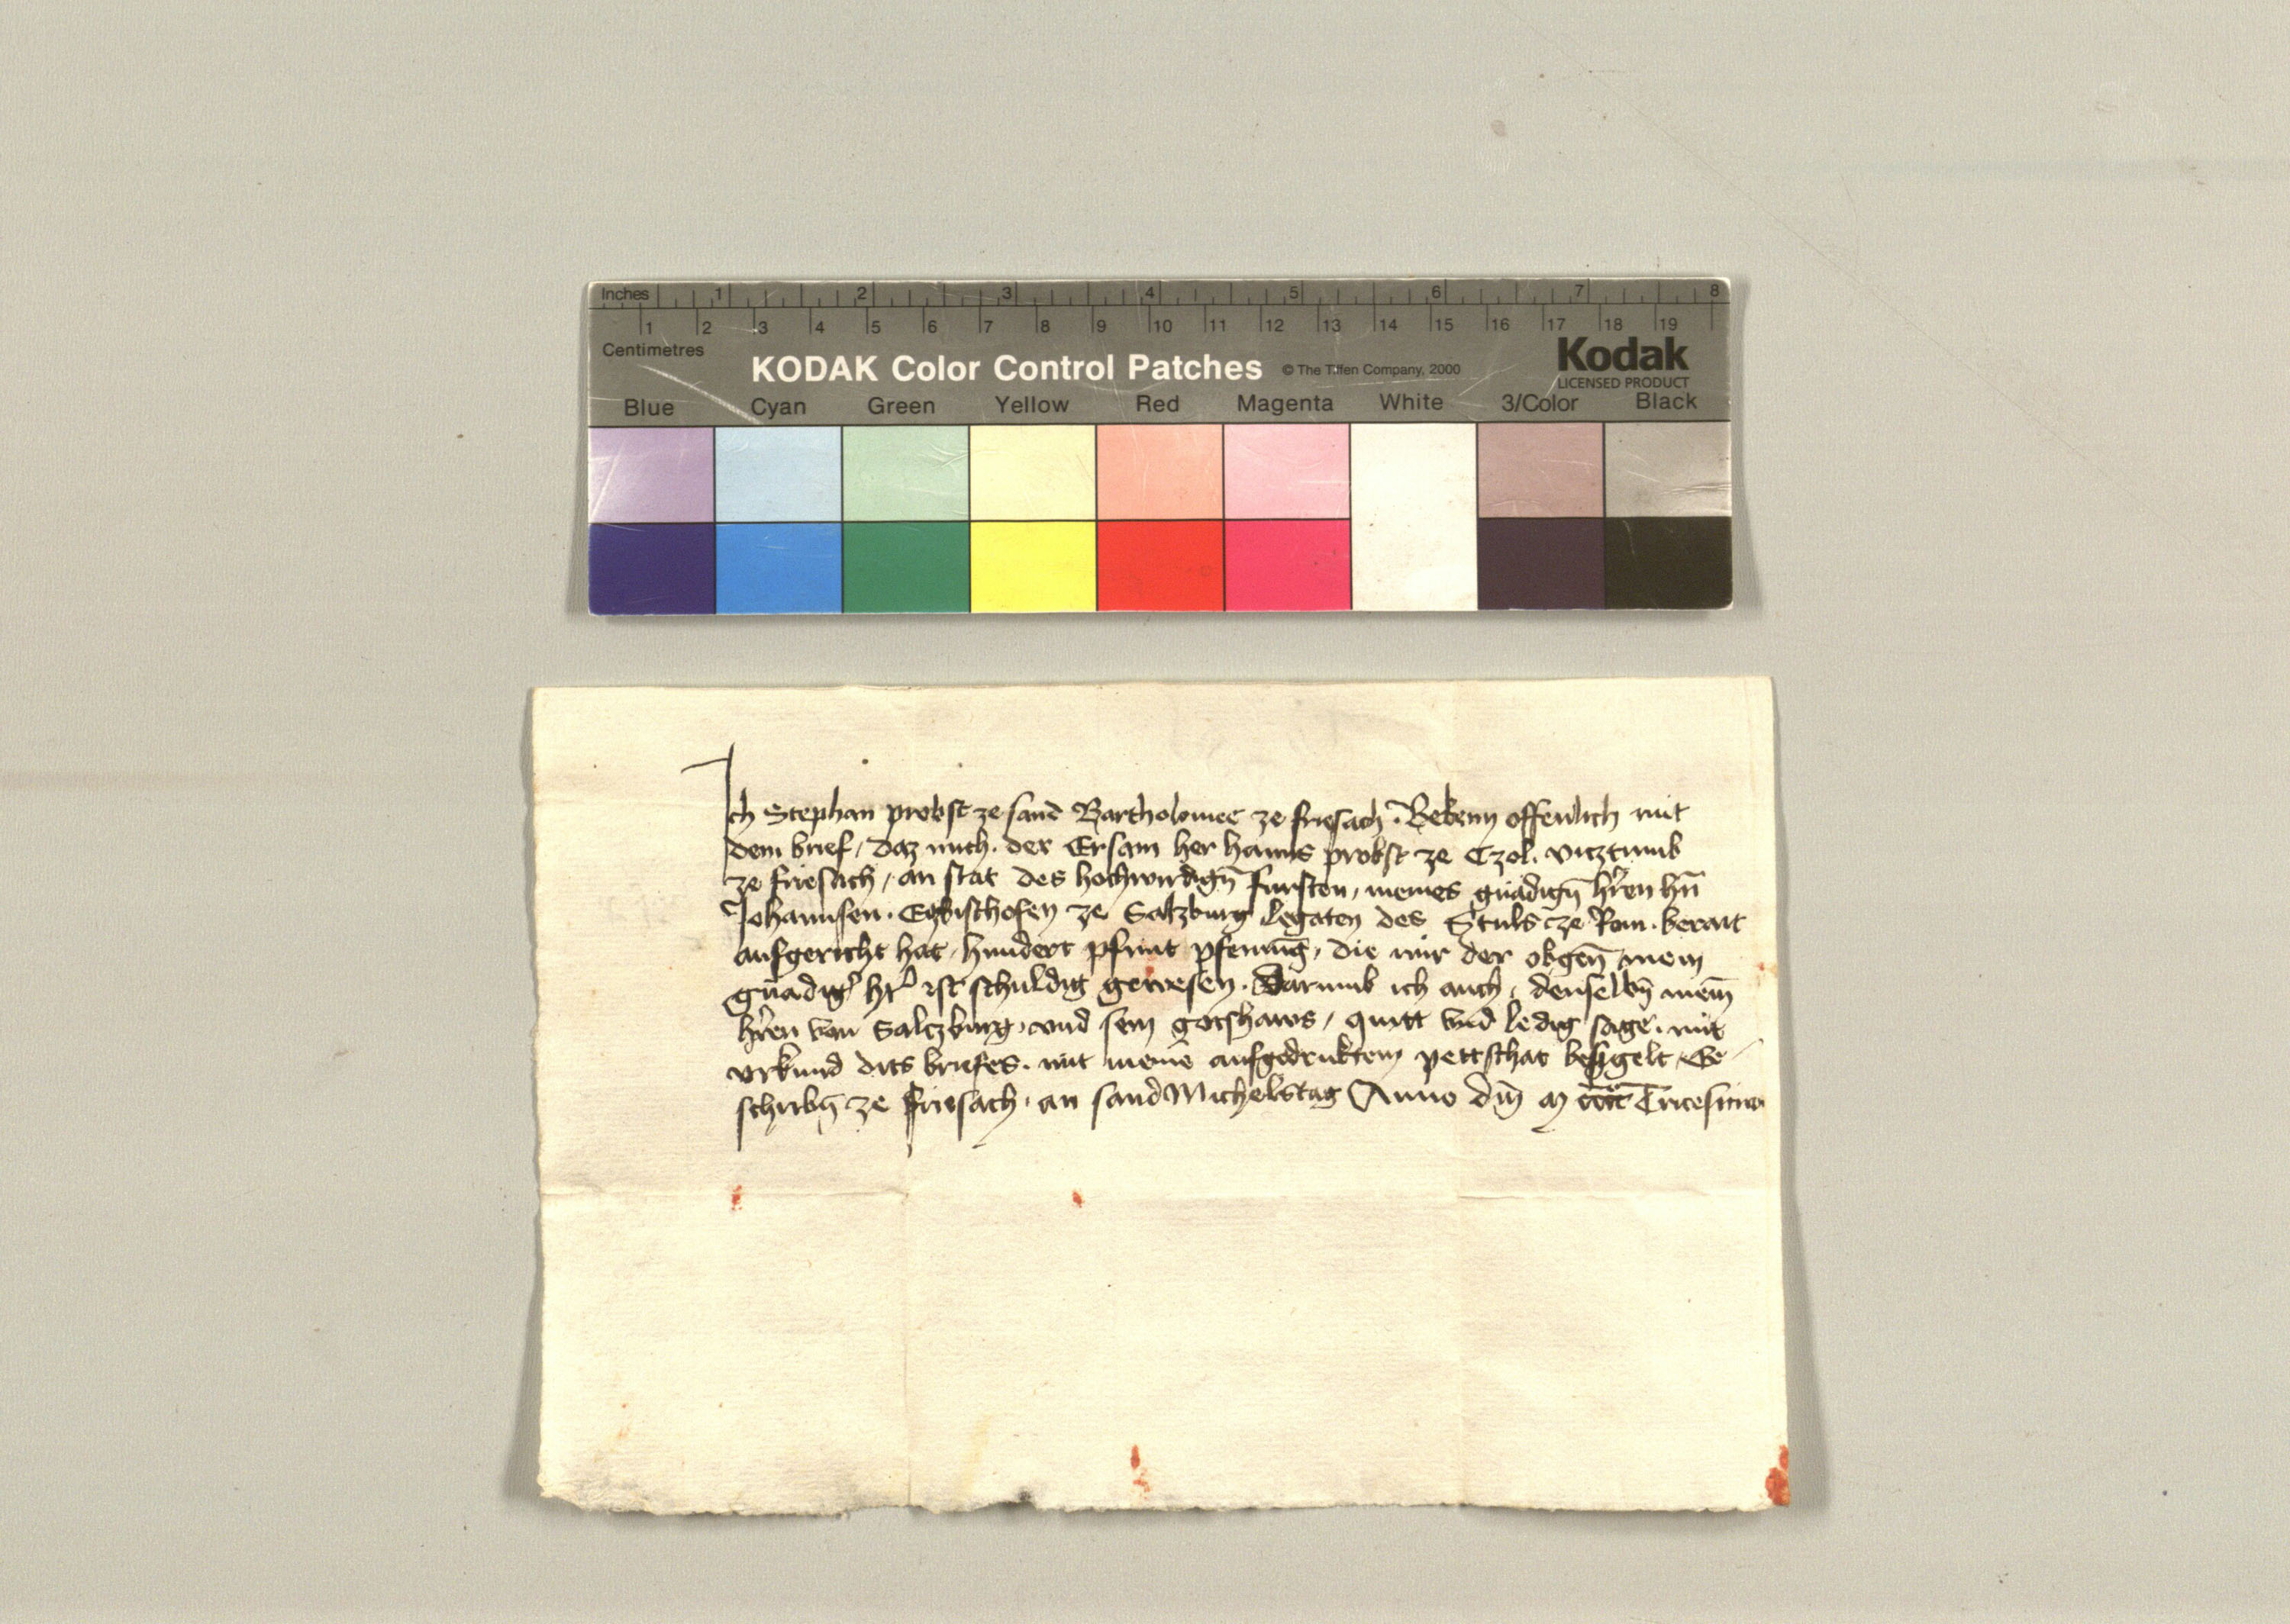 Inches 1 2 3 4 5 6 7 8
1 2 3 4 5 6 7 8 9 10 11 12 13 14 15 16 17 18 19
Centimetres
KODAK Color Control Patches © The Tiffen Company, 2000 Kodak
LICENSED PRODUCT
Blue Cyan Green Yellow Red Magenta White 3/Color Black
Ich Stephan probst ze sand Bartholomee ze friesach. Bekenn offenlich mit
dem brief, daz mich. der Ersam her hanns probst ze Czol. vicztumb
ze friesach, an stat des hochwirdign̄ fursten, meines gnadign̄ hr̄ren hn̄
Johannsen. Erzbischofen ze Salzburg legaten des Stuls ze Rom. berait
ausgericht hat, hundert pfunt pfenninḡ, die mir der obgen̄ mein
gnadig' hr' ist schuldig gewesen. Darumb ich auch, denselbn̄ mein̄
hr̄ren von Salczburg, vnd sein gotshaws, quitt vnd ledig sage. mit
vrkund dits briefes. mit meinē aufgedruktem pettschat besigelt, Ge-
schribn̄ ze friesach, an sand Michelstag Anno dm̄ M cccc Tricesimo